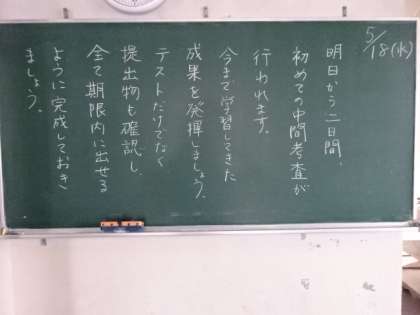 5/18(水)
明日から二日間、
初めての中間考査が
行われます。
今まで学習してきた
成果を発揮しましょう。
テストだけでなく
提出物も確認し
全て期限内に出せる
ように完成しておき
ましょう。